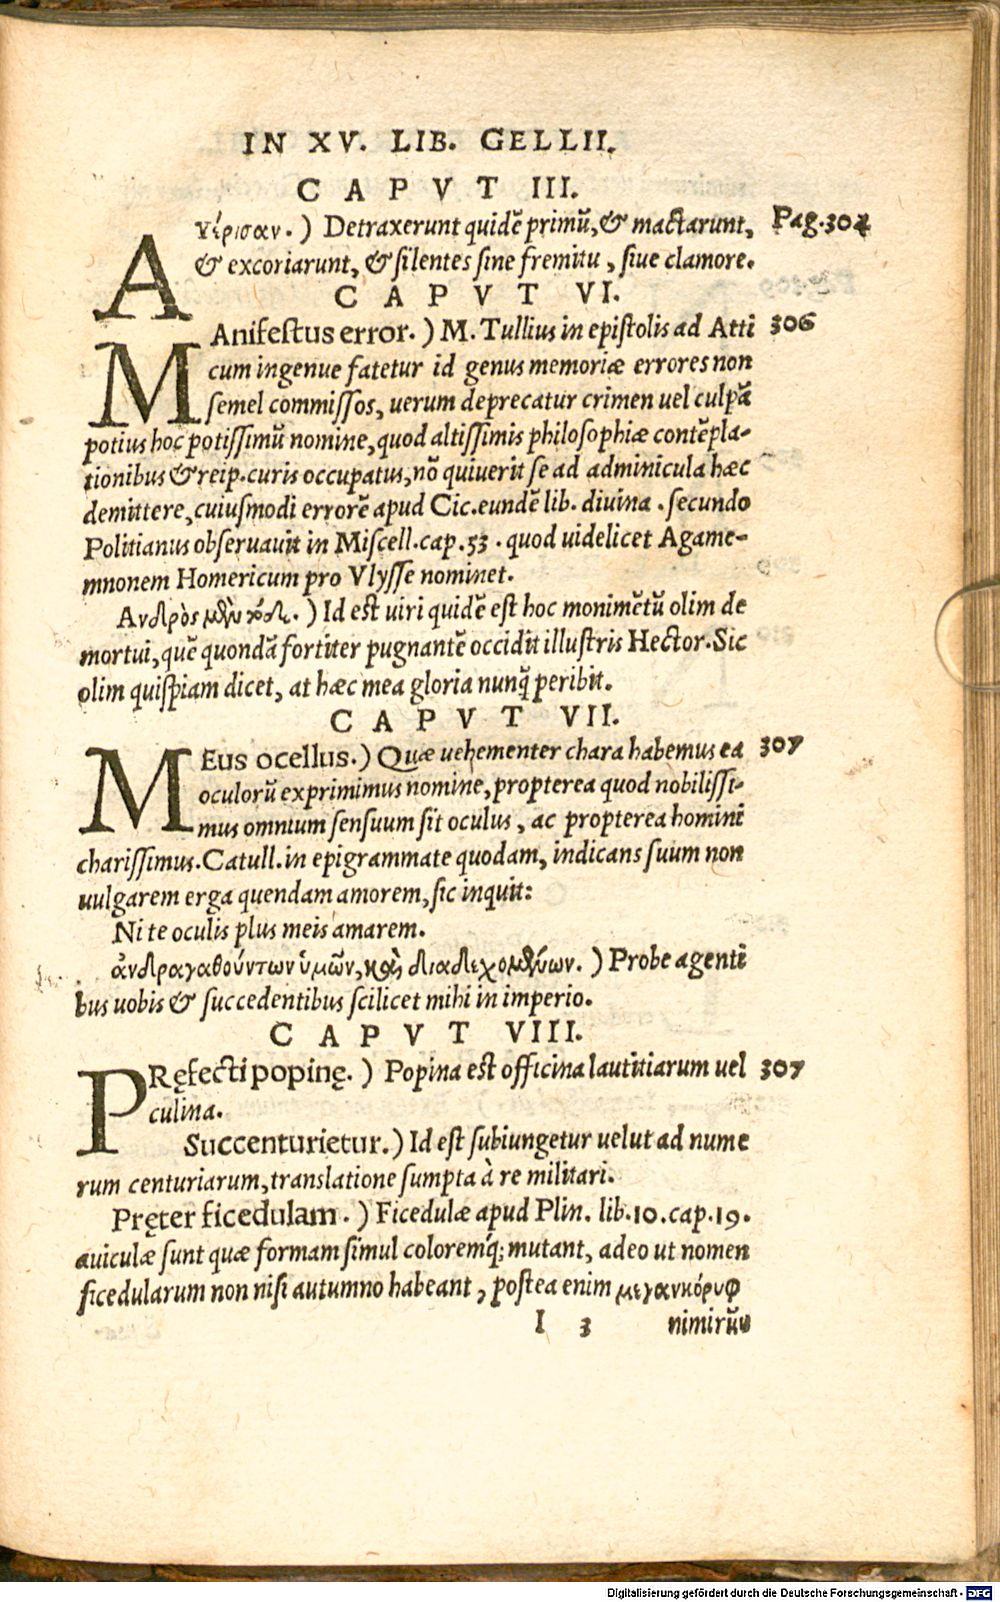 IN XV. LIB. GELLII.
CAPVT III.
Αὐέρισαν.) Detraxerunt quidẽ primũ, & mactarunt, Pag.304
& excoriarunt, & silentes sine fremitu, siue clamore.
CAPVT VI.
MAnifestus error.) M. Tullius in epistolis ad Atti 306
cum ingenue fatetur id genus memoriæ errores non
semel commissos, uerum deprecatur crimen uel culpã
potius hoc potissimũ nomine, quod altissimis philosophiæ contẽpla-
tionibus & reip. curis occupatus, nõ quiuerit se ad adminicula hæc
demittere, cuiusmodi errorẽ apud Cic. eundẽ lib. diuina. secundo
Politianus obseruauit in Miscell. cap. 53. quod uidelicet Agame-
mnonem Homericum pro Vlysse nominet.
Ανδρὸς μὲν τόδε.) Id est uiri quidẽ est hoc monimẽtũ olim de
mortui, quẽ quondã fortiter pugnantẽ occidit illustris Hector. Sic
olim quispiam dicet, at hæc mea gloria nunq̃ peribit.
CAPVT VII.
MEus ocellus.) Quæ uehementer chara habemus ea 307
oculorũ exprimimus nomine, propterea quod nobilissi-
mus omnium sensuum sit oculus, ac propterea homini
charissimus. Catull. in epigrammate quodam, indicans suum non
uulgarem erga quendam amorem, sic inquit:
Ni te oculis plus meis amarem.
ἀνδραγαθούντων ὑμῶν, καὶ διαδεχομένων.) Probe agenti
bus uobis & succedentibus scilicet mihi in imperio.
CAPVT VIII.
PRęfecti popinę.) Popina est officina lautitiarum uel 307
culina.
Succenturietur.) Id est subiungetur uelut ad nume
rum centuriarum, translatione sumpta à re militari.
Pręter ficedulam.) Ficedulæ apud Plin. lib.10. cap.19.
auiculæ sunt quæ formam simul coloremq́; mutant, adeo ut nomen
ficedularum non nisi autumno habeant, postea enim μεγανκόρυφ
I 3 nimirũ
Digitalisierung gefördert durch die Deutsche Forschungsgemeinschaft - DFG